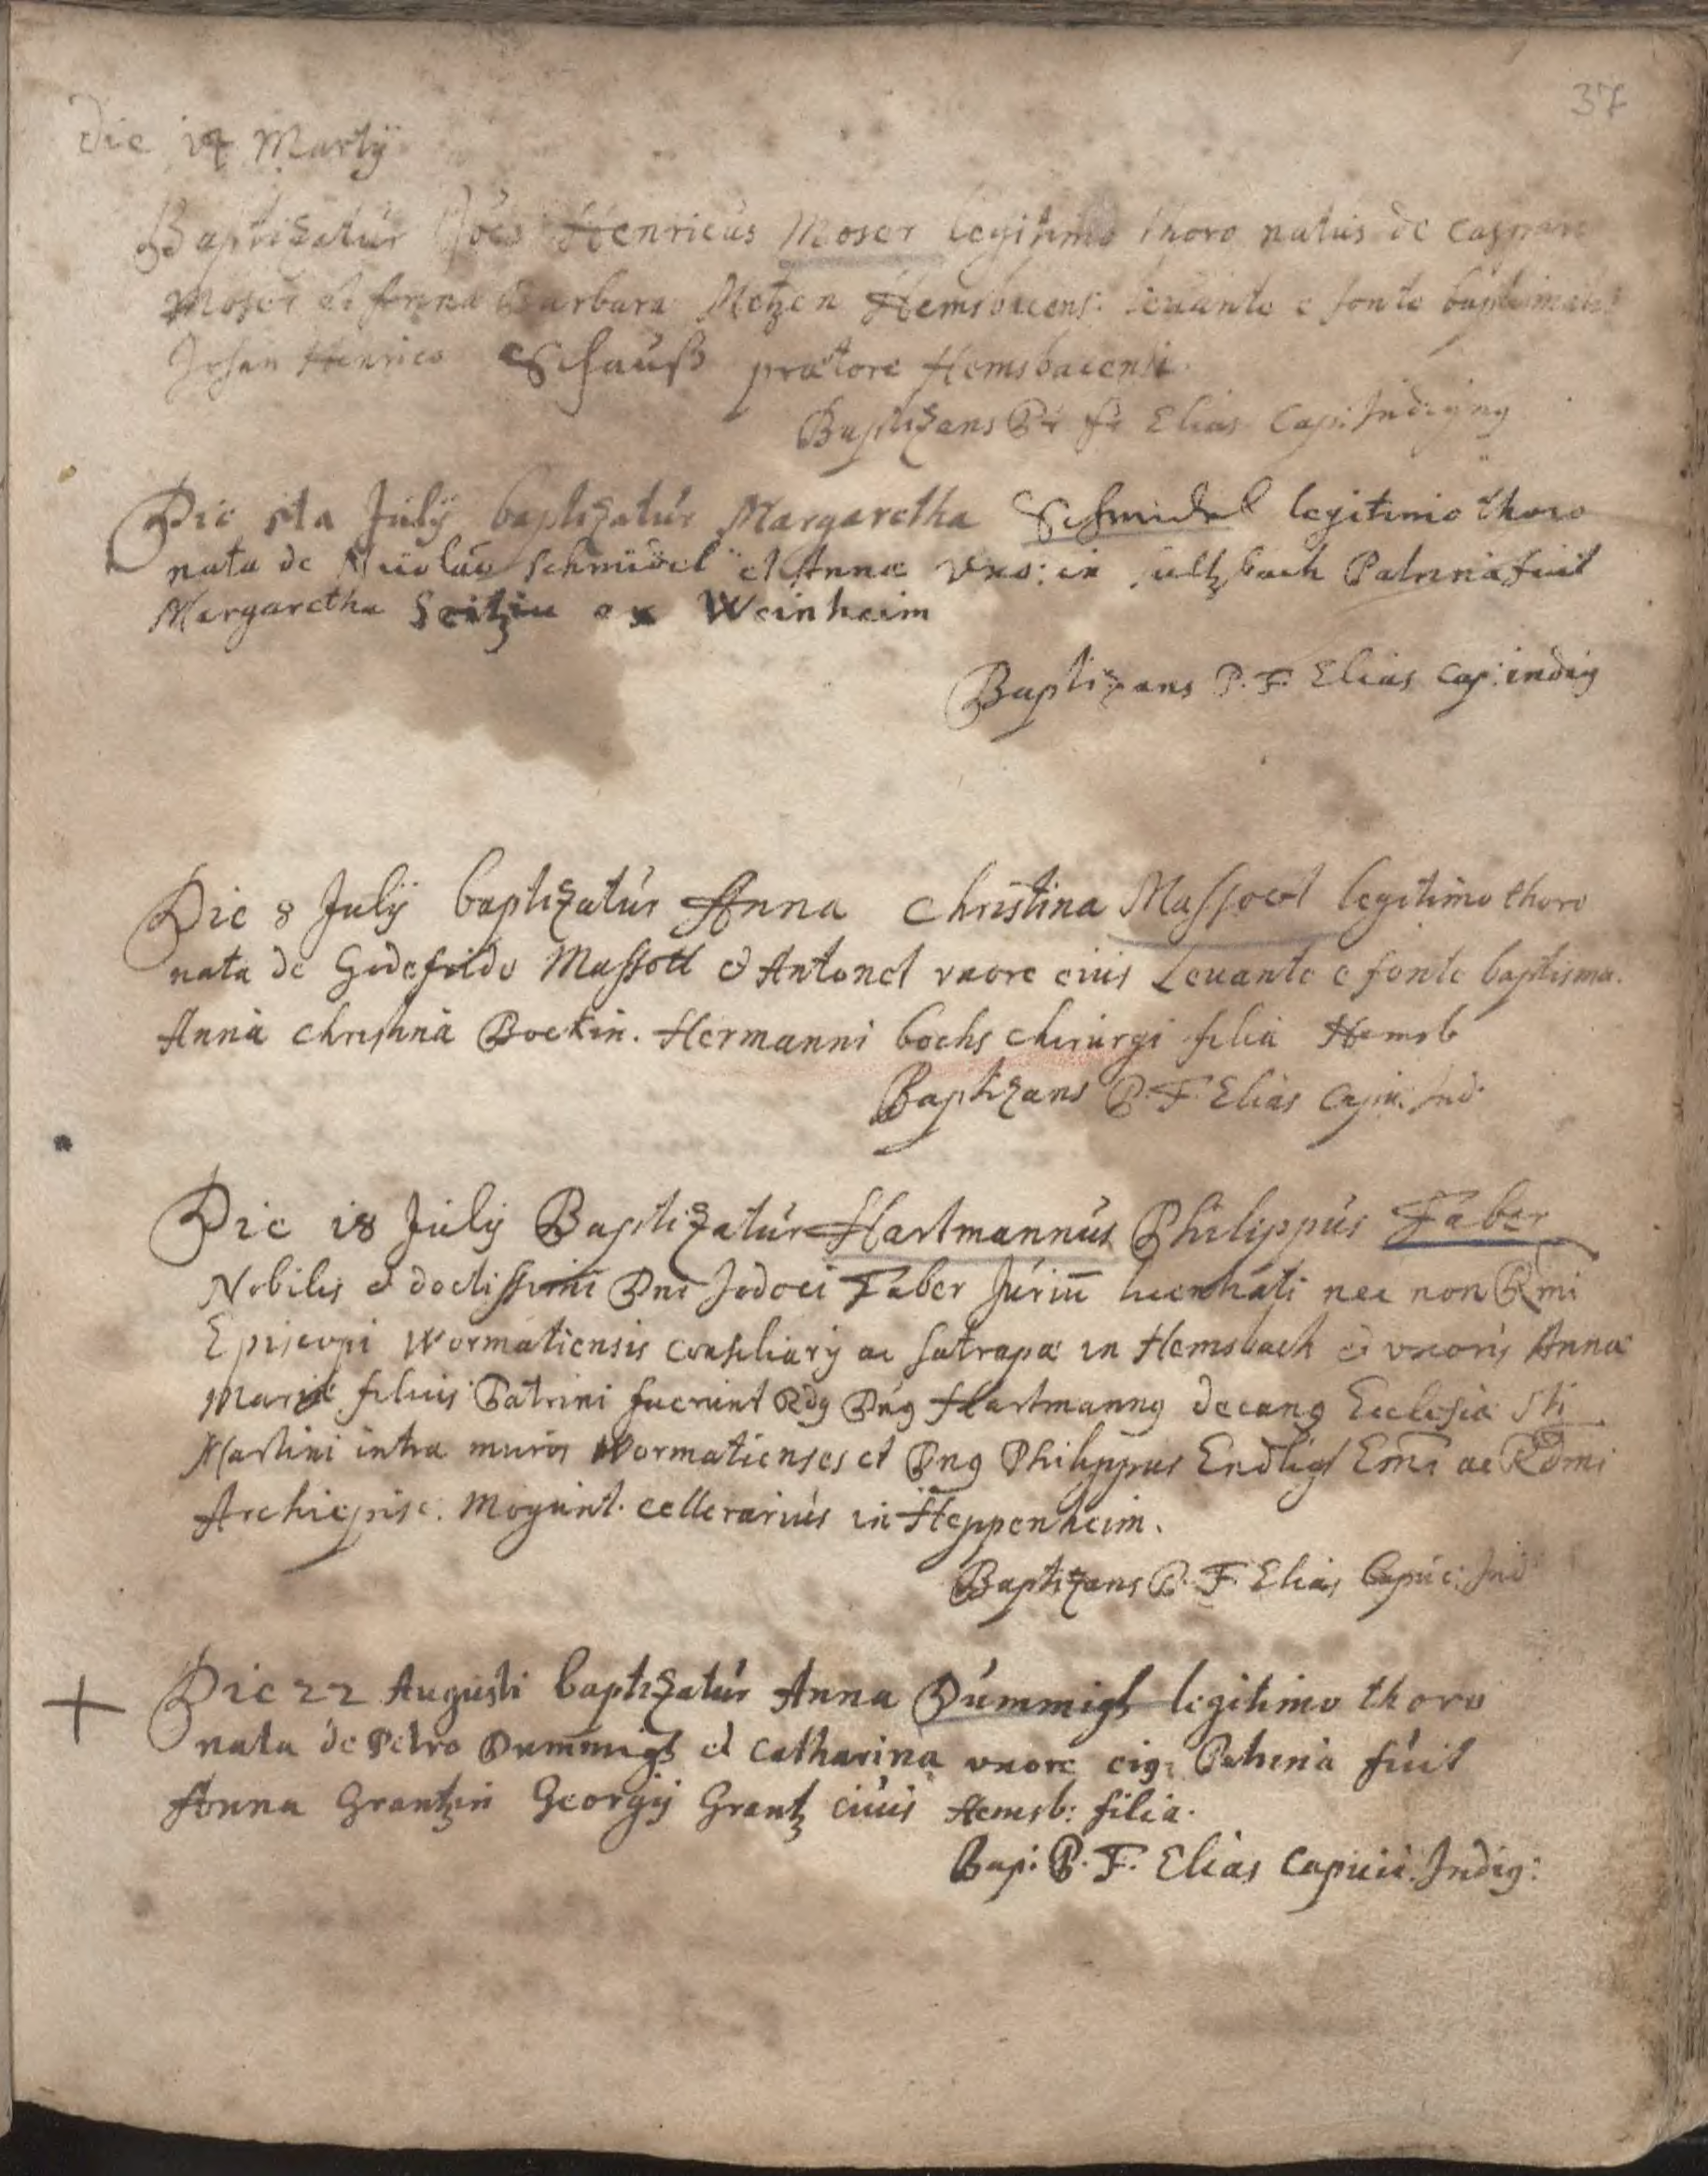 37
Die 17 Martÿ
Baptizatur Joes Henricus Moser legitimo thoro natus de Casparo
Moser et Anna Barbara Metzen Hemsbacens: leuante e fonte baptismali
Johan Henrico Schauß prætore Hemsbacensi.
Baptizans Pr fr Elias Cap: Indignq
Die 1ta Julÿ baptizatur Margaretha Schmidel legitimo thoro
nata de Nicolao Schmidel et Anna vxo: in sultzbach Patrina fuit
Margaretha Seitzin ex Weinheim
Baptizans P. F. Elias Cap: indig
Die 8 Julÿ baptizatur Anna Christina Massoet legitimo thoro
nata de Godefrido Massott et Antonet vxore eius Leuante e fonte baptisma.
Anna Christina Boekin. Hermanni bochs chirurgi filia Hemsb
Baptizans P. F. Elias Capu. Ind:
Die 18 Julÿ Baptizatur Hartmannus Philippus Faber
Nobilis et doctissimi Dni Jodoci Faber Juriū licentiati nec non Rmi
Episcopi Wormatiensis consiliarÿ ac satrapæ in Hemsbach et vxoris Annæ
Mariæ filius Patrini fuerunt Rdq Dnq Hartmannq decanq Ecclesiæ Sti
Martini intra muros Wormatienses et Dnq Philippus Endlich Emi ac Rdmi
Archiepisc. Mogunt. cellerarius in Heppenheim.
Baptizans P. F. Elias Capuc: Ind:
+ Die 22 Augusti baptizatur Anna Dummigs legitimo thoro
nata de Petro Dummigs et Catharina vxore eiq: Patrina fuit
Anna Grantzin Georgÿ Grantz ciuis Hemsb: filia.
Bap: P. F. Elias Capuc: Indig: